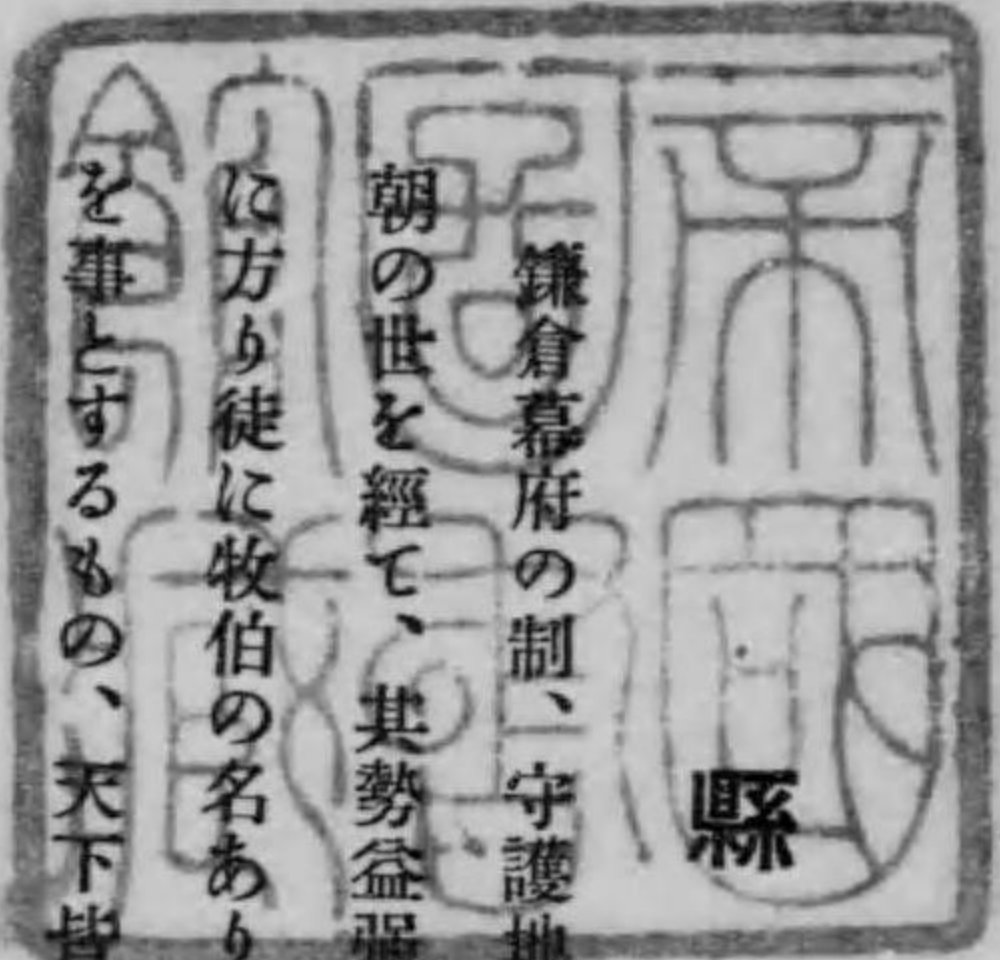 縣
鎌倉幕府の制、一守護地
朝の世を經て、其勢益强
に方り徒に牧伯の名あり
を事とするもの、天下皆